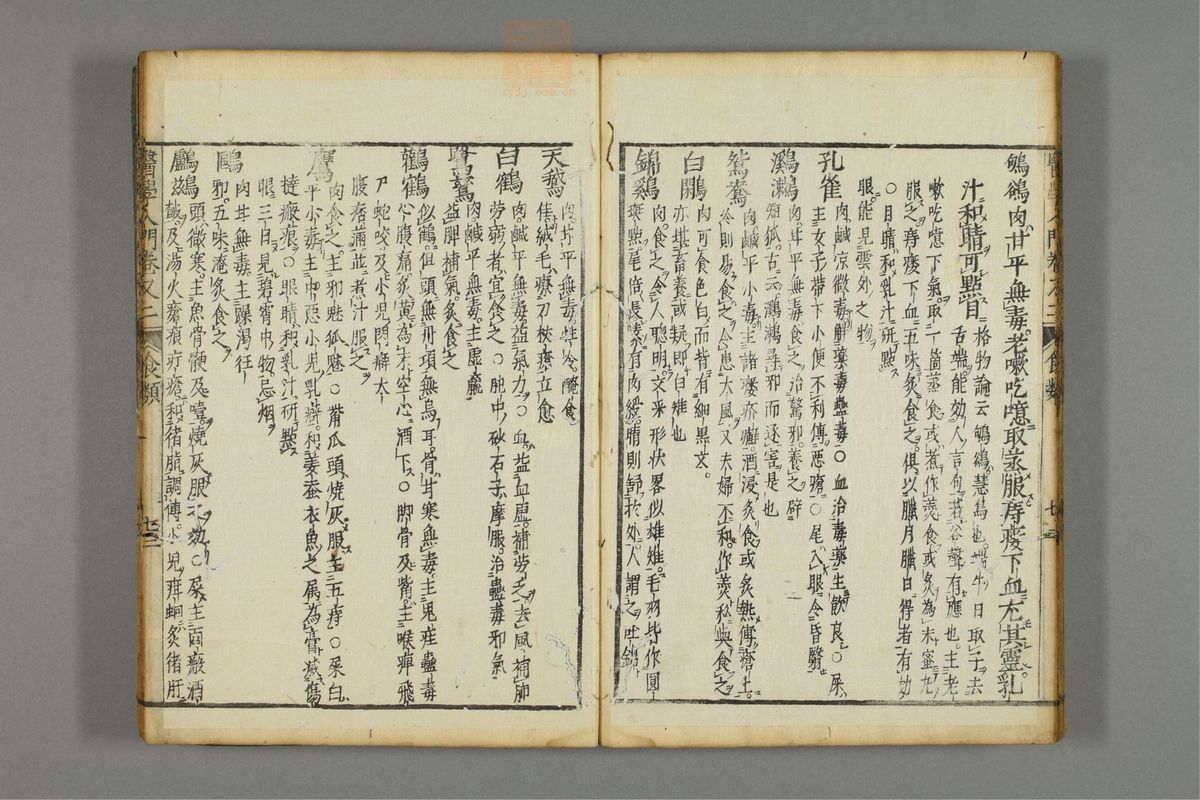 鴝鵒肉甘平無毒老嗽吃噫取蒸服痔瘻下血尤其靈乳
汁和睛可點目
格物論云鴝鵒慧鳥也端午日取子去
舌端能効人言句若谷聲有應也主老
嗽吃噫下氣取一箇蒸食或煮作羹食或炙為末蜜丸
服之痔瘻下血五味炙食之俱以臘月臘日得者有効
○目睛和乳汁研點
眼能見雲外之物
孔雀
肉鹹凉微毒解藥毒蠱毒○血治毒藥生飲良○屎
主女子帶下小便不利傅惡瘡○尾入眼令昏翳
鸂鶒
肉甘平無毒食之治驚邪養之辟
短狐古云鸂鶒尋邪而逐害是也
鴛鴦
肉鹹平小毒主諸瘻疥癬酒浸炙食或炙熱傅瘡上
冷則易食之令患大風又夫婦不和作羹私與食之
白鷴
肉可食色白而背有細黑文
亦堪畜養或疑即白雉也
錦鷄
肉食之令人聰明文采形状畧似雄雉毛羽皆作圓
斑點尾倍長嗉有肉綬晴則舒於外人謂之吐錦
天鵝
肉甘平無毒性冷醃食
佳絨毛療刀杖瘡立愈
白鶴
肉鹹平無毒益氣力○血益血虛補勞乏去風補肺
勞弱者宜食之○肫中砂石子摩服治蠱毒邪氣
肉鹹平無毒主虛羸
益脾補氣炙食之
鸛鶴
似鶴但頭無丹項無烏耳骨甘寒無毒主鬼疰蠱毒
心腹痛炙黃為末空心酒下○脚骨及觜主喉痺飛
尸蛇咬及小児閃癖大
腹痞滿並煮汁服之
鷹
肉食之主邪魅狐魅○觜爪頭燒灰服主五痔○屎白
平小毒主中惡小児乳癖和姜蚕衣魚之属為膏滅傷
撻瘢痕○眼睛和乳汁研點
眼三日見碧霄中物忌烟
鷗
肉甘無毒主躁渴狂
邪五味淹炙食之
鸕鷀
頭微寒主魚骨骾及噎燒灰服立効○屎主面瘢酒
皶及湯火瘡痕疔瘡和猪脂調傅小児疳蛔炙猪肝
醫學入門卷又二 食類